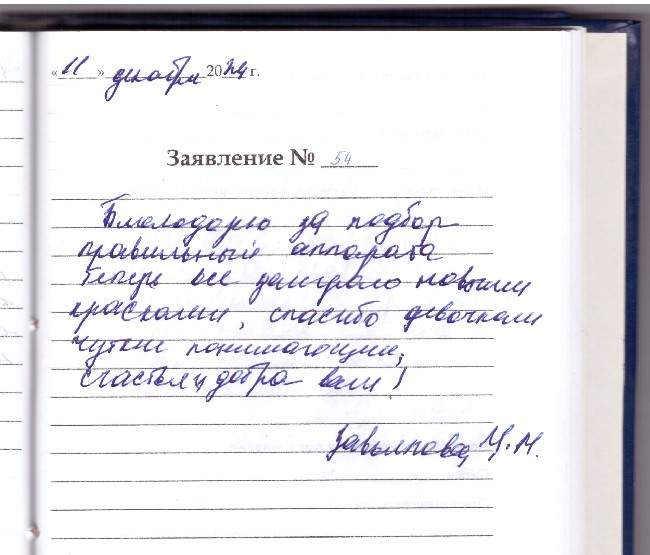 «11» декабря 2024 г.
Заявление № 54
Благодарю за подбор
правильный аппарата
Теперь все заиграло новыми
красками, спасибо девочкам
чутким понимающим,
счастья и добра вам!
И. М.